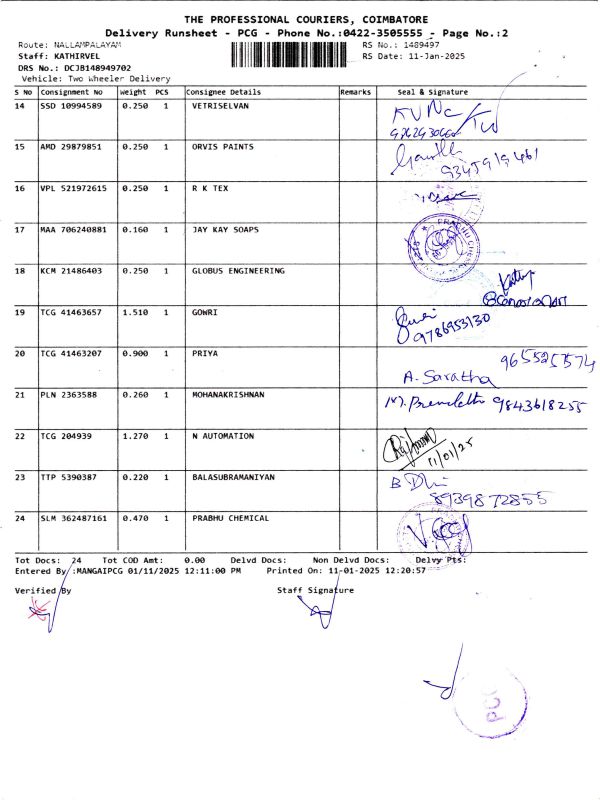 THE PROFESSIONAL COURIERS, COIMBATORE
Delivery Runsheet - PCG - Phone No.:0422-3505555 - Page No.:2
Route: NALLAMPALAYAM RS No.: 1489497
Staff: KATHIRVEL RS Date: 11-Jan-2025
DRS No.: DCJB148949702
Vehicle: Two Wheeler Delivery
S NO Consignment No Weight PCS Consignee Details Remarks Seal & signature
14 SSD 10994589 0.250 1 VETRISELVAN
15 AMD 29879851 0.250 1 ORVIS PAINTS
16 VPL 521972615 0.250 1 R K TEX
17 MAA 706240881 0.160 1 JAY KAY SOAPS
18 KCM 21486403 0.250 1 GLOBUS ENGINEERING
19 TCG 41463657 1.510 1 GOWRI 9786953130
20 TCG 41463207 0.900 1 PRIYA
A. Saratha
21 PLN 2363588 0.260 1 MOHANAKRISHNAN 9843618255
22 TCG 204939 1.270 1 N AUTOMATION
11/01/25
23 TTP 5390387 0.220 1 BALASUBRAMANIYAN
8939872855
24 SLM 362487161 0.470 1 PRABHU CHEMICAL
Tot Docs: 24 Tot COD Amt: 0.00 Delvd Docs: Non Delvd Docs: Delvy Pts:
Entered By :MANGAIPCG 01/11/2025 12:11:00 PM Printed On: 11-01-2025 12:20:57
Verified By Staff Signature
PCG